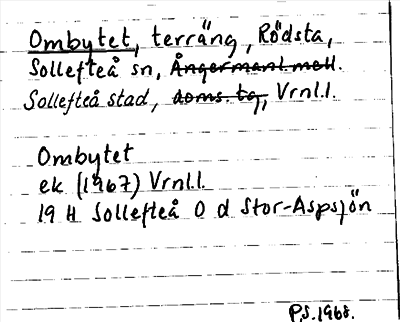 Ombytet, terräng, Rödsta,
Sollefteå sn, Ångermanl. mell.
Sollefteå stad, doms. tg, Vrnl.l.
Ombytet
ek (1967) Vrnl.l.
19 H Sollefteå O d Stor-Aspsjön
P.S. 1968.